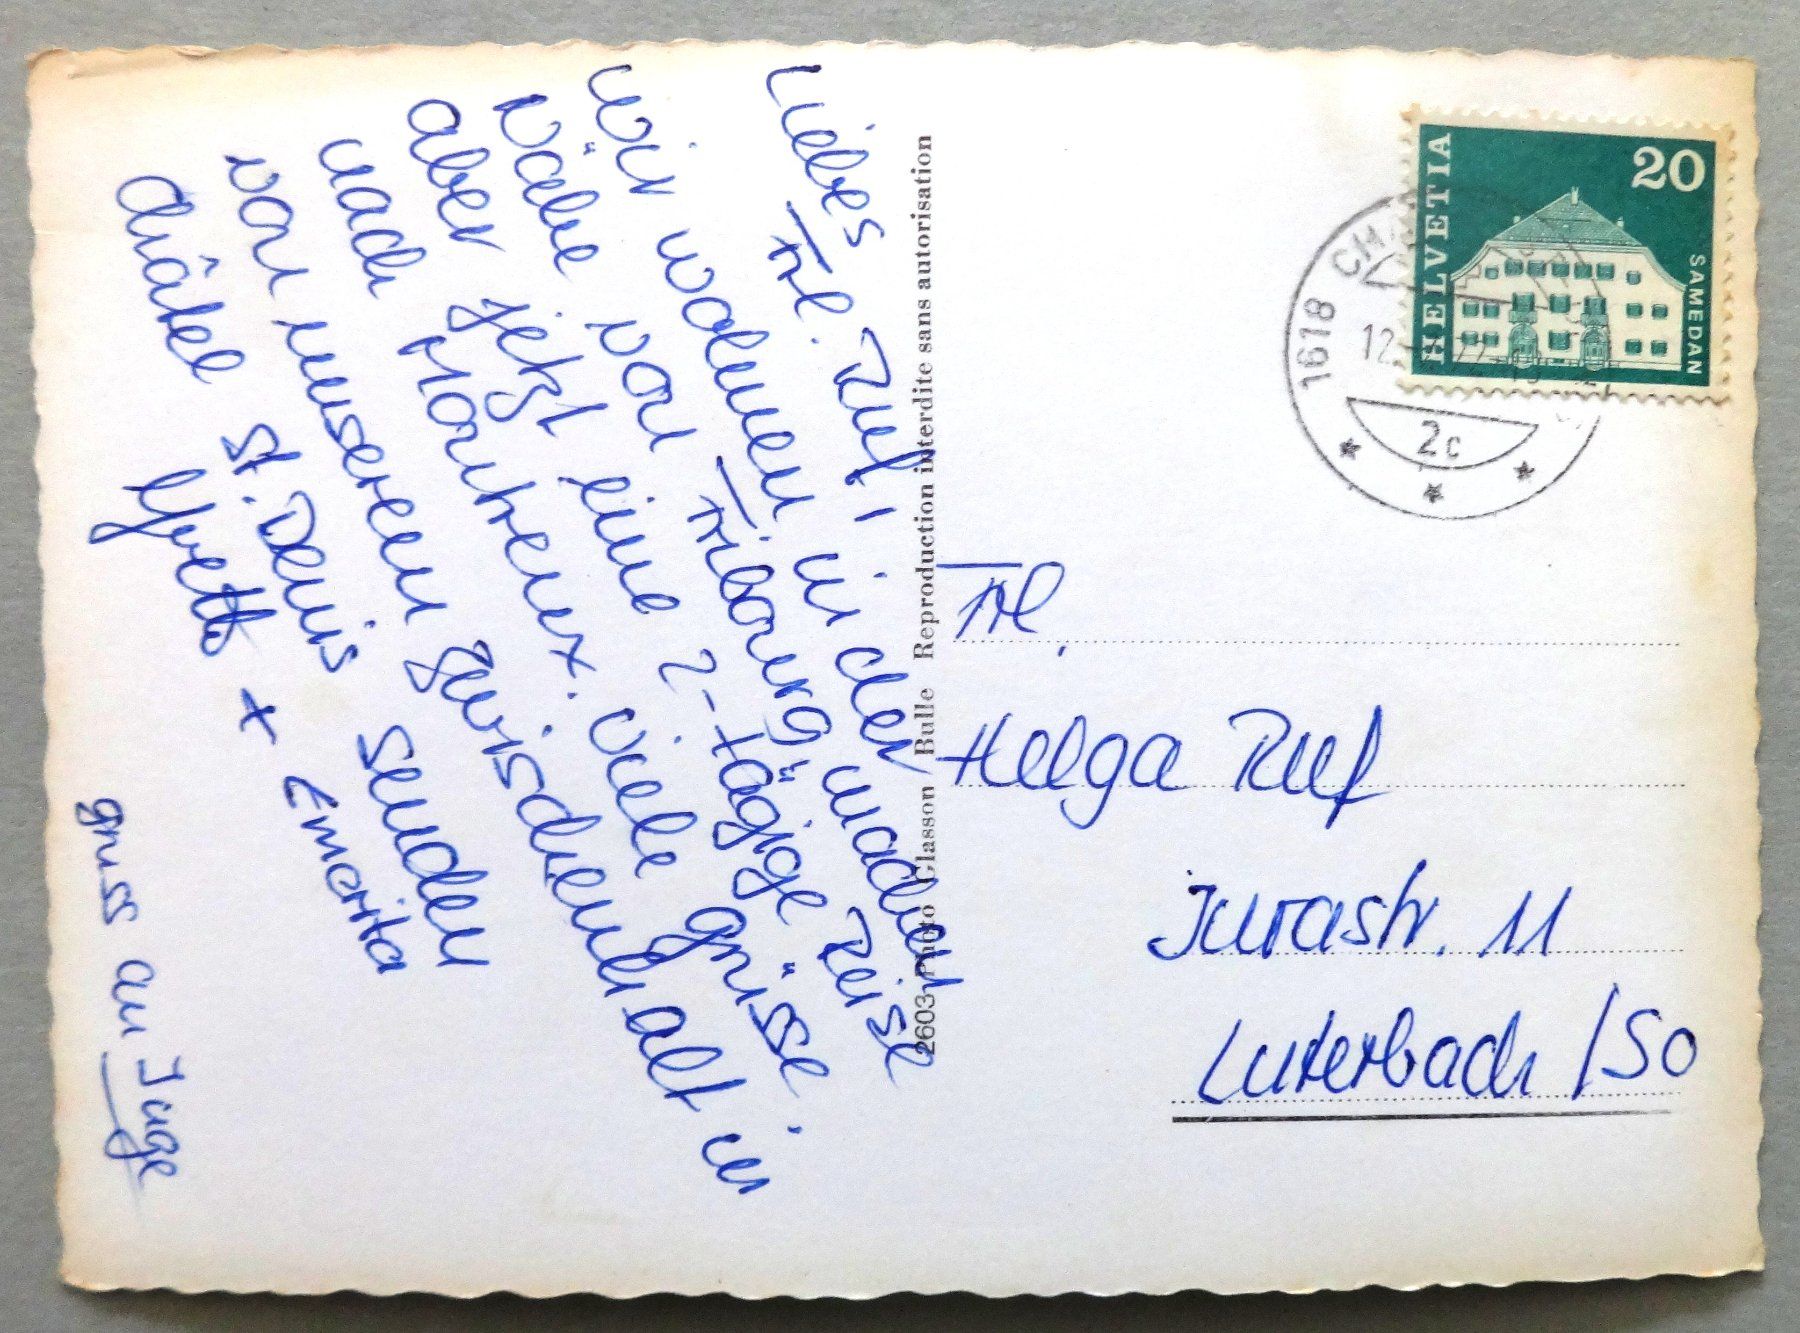 Liebes Frl. Ruf!
Wir wohnen in der
Nähe von Fribourg machen
aber jetzt eine 2-tägige Reise
nach Montreux. Viele Grüsse
von unserem Zwischenhalt in
Châtel St. Denis senden
Yvette + Emerita
Gruss an Inge
2603 Photo Glasson Bulle Reproduction interdite sans autorisation
HELVETIA
20
SAMEDAN
1618
12.
2c
Frl.
Helga Ruf
Jurastr. 11
Luterbach /So